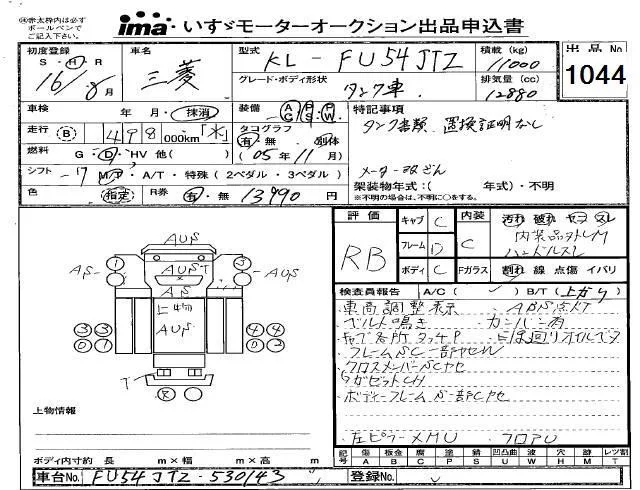 ㊟赤太枠内は必ず
ボールペンで
ご記入下さい。
ima いすゞモーターオークション出品申込書
初度登録 車名 型式 KL-FU54JTZ 積載 (kg) 11000 出品No 1044
S・H・R 16/8月 三菱
グレード・ボディ形状 タンク車 排気量 (cc) 12880
車検 年 月・抹消 装備 A C P S P W 特記事項
走行 B 498 000km「不」 タコグラフ 有・無 別体 タンク書類 置換証明なし
燃料 G・D・HV 他( ) (05年11月)
シフト 7 M/T・A/T・特殊(2ペダル・3ペダル) 架装物年式:( 年式)・不明
色 指定 R券 有・無 13990円 ※不明の場合は、不明に○をする。
評価 RB キャブ C 内装 C 汚れ 破れ
フレーム D
ボディ C Fガラス 割れ 線 点傷 イバリ
検査員報告 A/C( )B/T(上がり)
車高調整表示 ABS点灯
ベルト鳴き
フレームSC一部ヤセル
クロスメンバーSCヤセ
ガゼットCH
ボディーフレームS一部Cヤセ
左ピラーXMU フロアU
AUS
AS AUST AS
AS
上物
AUS
T
R
上物情報
ボディ内寸約 長 m×幅 m×高 m
記号 傷 A 板金 B 腐 C 塗 P 錆 S 凹凸曲 U 波 W 穴 H 欠 M 希 T レツ割
車台No. FU54JTZ-530143 登録No.